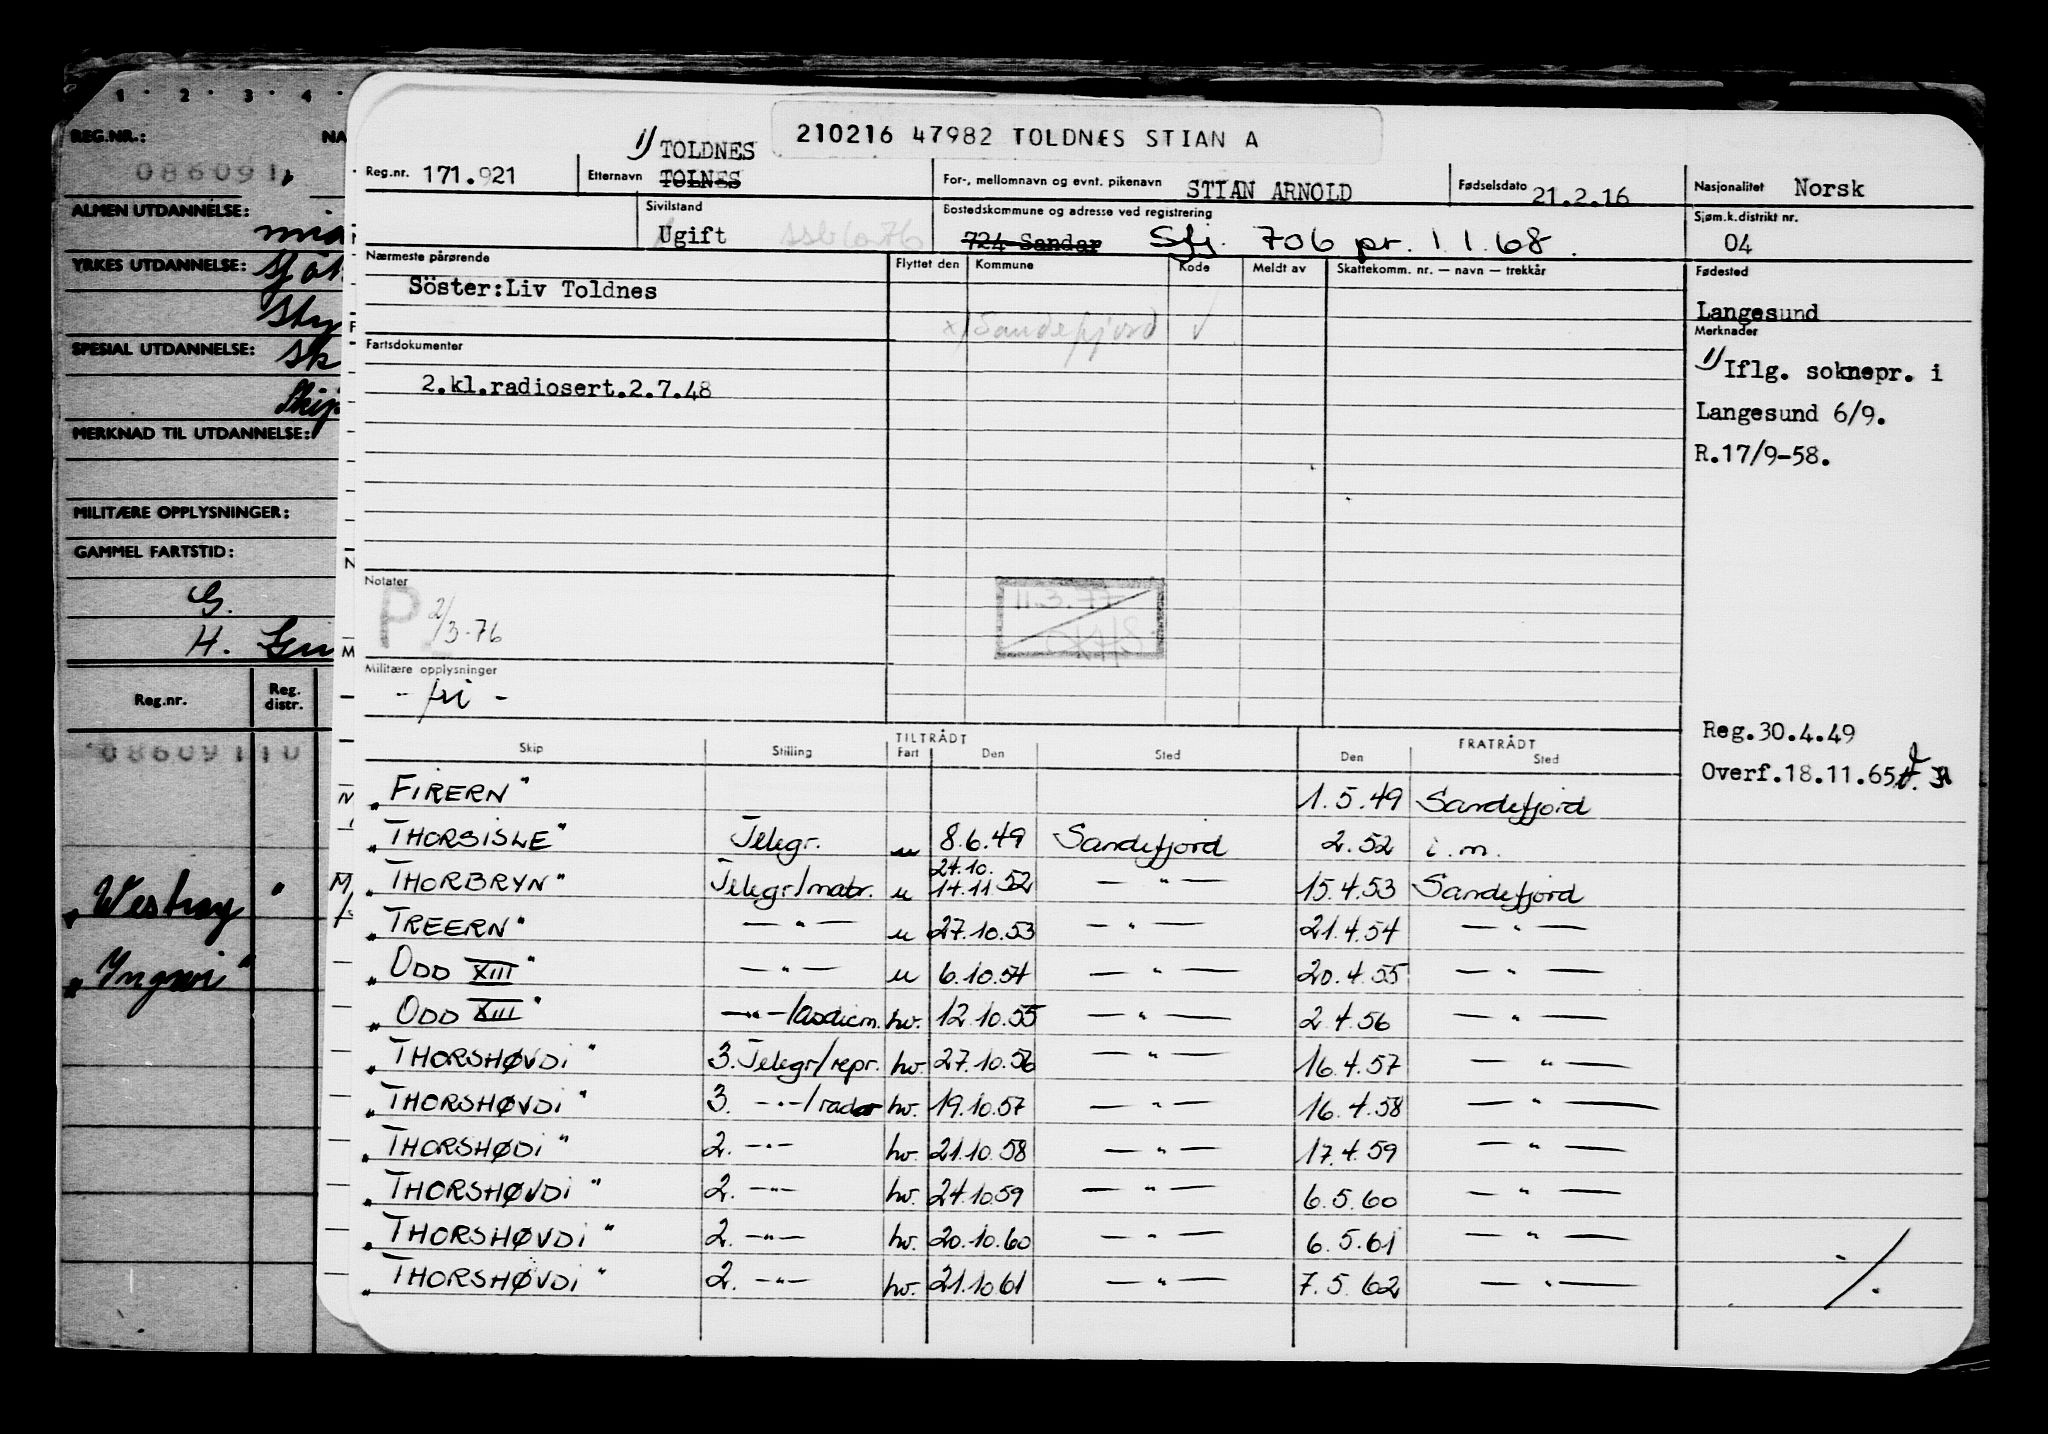 1 · 2 · 3 · 4 ·
REG.NR.: NA
086091
ALMEN UTDANNELSE:
YRKES UTDANNELSE:
SPESIAL UTDANNELSE:
MERKNAD TIL UTDANNELSE:
MILITÆRE OPPLYSNINGER:
GAMMEL FARTSTID:
G.
H.
Reg.nr. Reg. distr.
08609110
"Westray"
"Ingwi"
210216 47982 TOLDNES STIAN A
1) TOLDNES
Reg.nr. 171.921 Etternavn TOLNES For-, mellomnavn og evnt. pikenavn STIAN ARNOLD Fødselsdato 21.2.16 Nasjonalitet Norsk
Sivilstand Ugift Bostedskommune og adresse ved registrering 724 Sandar Sfj. 706 pr. 1.1.68. Sjøm.k.distrikt nr. 04
Nærmeste pårørende Flyttet den Kommune Kode Meldt av Skattekomm. nr. — navn — trekkår Fødested
Söster:Liv Toldnes Langesund
x) Sandefjord √
Merknader
Fartsdokumenter
2.kl.radiosert.2.7.48
1) Iflg. soknepr. i
Langesund 6/9.
R.17/9-58.
Notater
P 2/3-76
11.3.77
Militære opplysninger
- fri -
Reg.30.4.49
Overf.18.11.65
TILTRÅDT FRATRÅDT
Skip Stilling Fart Den Sted Den Sted
"FIRERN" 1.5.49 Sandefjord
"THORSISLE" Telegr. u 8.6.49 Sandefjord 2.52 i.m.
24.10.
"THORBRYN" Telegr/matr. u 14.11 52 — " — 15.4.53 Sandefjord
"TREERN" — " — u 27.10.53 — " — 21.4.54 — " —
"ODD XIII" — " — u 6.10.54 — " — 20.4.55 — " —
"ODD XIII" — " —/asdicm. hv. 12.10.55 — " — 2.4.56 — " —
"THORSHØVDI" 3. Telegr/repr. hv. 27.10.56 — " — 16.4.57 — " —
"THORSHØVDI" 3. — " —/radar hv. 19.10.57 — " — 16.4.58 — " —
"THORSHØDI" 2. — " — hv. 21.10.58 — " — 17.4.59 — " —
"THORSHØVDI" 2. — " — hv. 24.10.59 — " — 6.5.60 — " —
"THORSHØVDI" 2. — " — hv. 20.10.60 — " — 6.5.61 — " —
"THORSHØVDI" 2. — " — hv. 21.10.61 — " — 7.5.62 — " —
./.